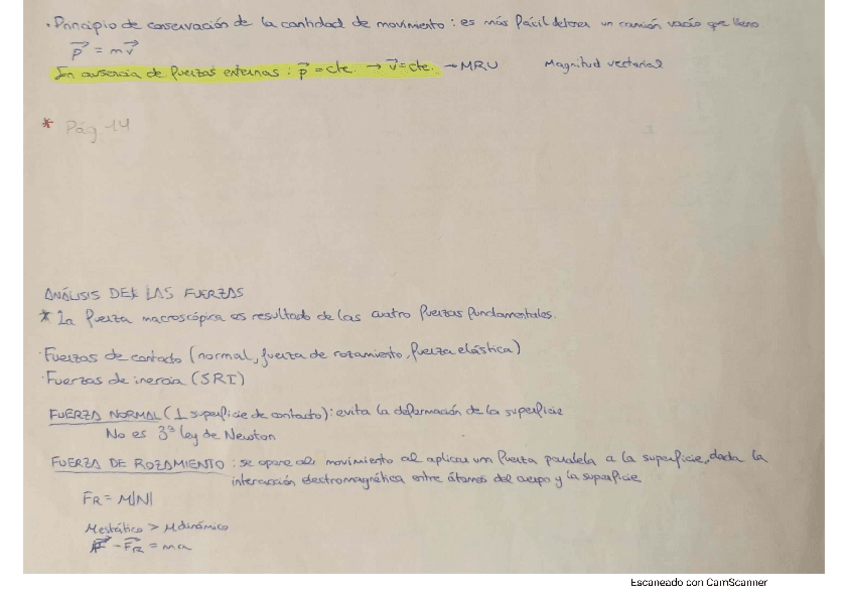 · Principio de conservación de la cantidad de movimiento : es más fácil detener un camión vacío que lleno
p⃗ = mv⃗
En ausencia de fuerzas externas : p⃗ = cte. → v⃗ = cte. → MRU Magnitud vectorial
* Pág 14
ANÁLISIS DE LAS FUERZAS
* La fuerza macroscópica es resultado de las cuatro fuerzas fundamentales.
· Fuerzas de contacto (normal, fuerza de rozamiento, fuerza elástica)
· Fuerzas de inercia (SRI)
FUERZA NORMAL (⊥ superficie de contacto) : evita la deformación de la superficie
No es 3ª ley de Newton
FUERZA DE ROZAMIENTO : se opone al movimiento al aplicar una fuerza paralela a la superficie, dada la
interacción electromagnética entre átomos del cuerpo y la superficie
FR = μ|N|
μestático > μdinámico
F⃗ - F⃗R = ma
Escaneado con CamScanner